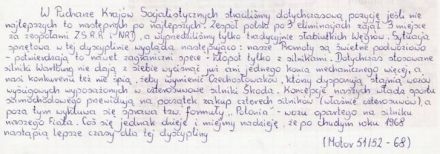 W Pucharze Krajów Socjalistycznych straciliśmy dotychczasową pozycję jeśli nie
najlepszych to następnych po najlepszych. Zespół polski po 3 eliminacjach zajął 3 miejsce
za zespołami ZSRR i NRD, a wyprzedziliśmy tylko tradycyjnie słabiutkich Węgrów. Sytuacja
sprzętowa w tej dyscyplinie wygląda następująco: nasze Promoty są świetne podwoziowo
- potwierdzają to nawet zagraniczni spece - kłopot tylko z silnikami. Dotychczas stosowane
silniki Wartburg nie dadzą z siebie wycisnąć już ani jednego konia mechanicznego więcej, a
nasi konkurenci też nie śpią, żeby wymienić Czechosłowaków, którzy dysponują stajnią wozów
wyścigowych wyposażonych w czterosuwowe silniki Škoda. Koncepcje naszych władz sportu
samochodowego przewidują na początek zakup czterech silników (właśnie czterosuwów), a
poza tym wykluwa się sprawa tzw. formuły „Polonia” - wozu opartego na silniku
naszego Fiata. Coś się jednak dzieje i miejmy nadzieję, że po chudym roku 1968
nastąpią lepsze czasy dla tej dyscypliny
(Motor 51\52 - 68)